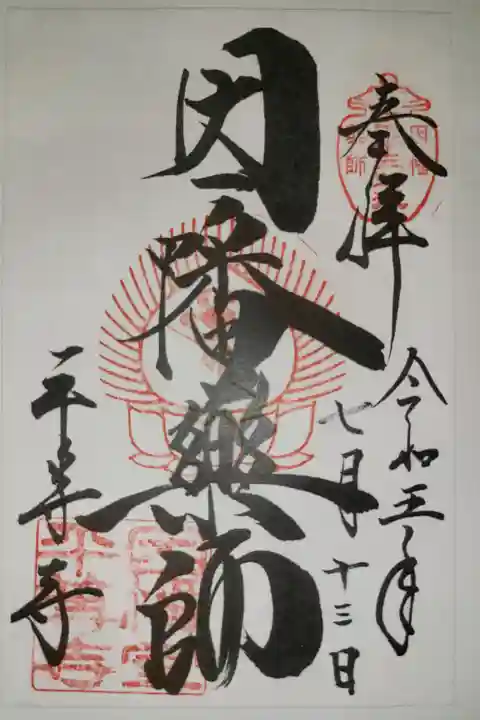 奉拝
令和五年
七月十三日
因幡藥師
平等寺